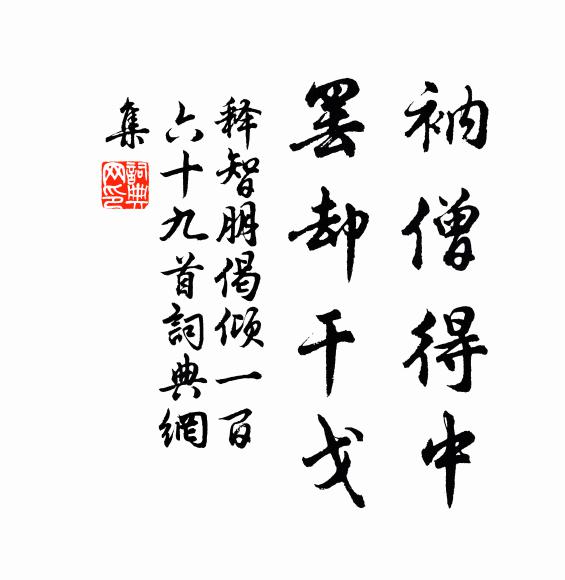 衲僧得中
罢却干戈
释智朋偈倾一百
六十九首詞典網
集
詞典
网印